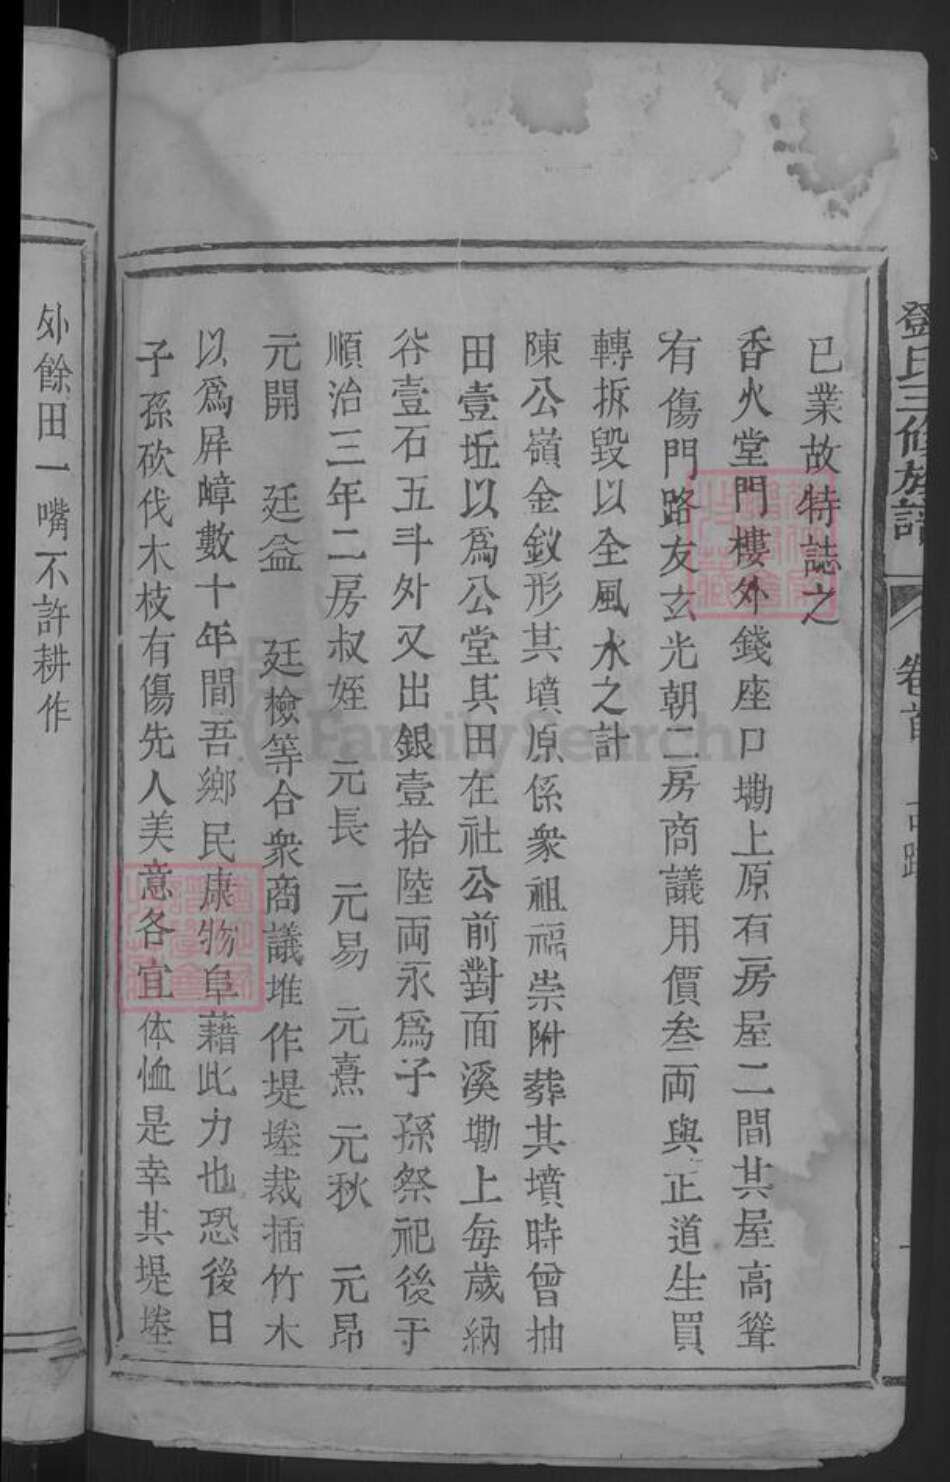 鄧氏三修族譜 卷首 古蹟
已業故特誌之
香火堂門樓外錢座口墈上原有房屋二間其屋高聳
有傷門路友玄光朝二房商議用價叁両與正道生買
轉拆毀以全風水之計
陳公嶺金釵形其墳原係衆祖福崇附葬其墳時曾抽
田壹坵以爲公堂其田在社公前對面溪墈上每歲納
谷壹石五斗外又出銀壹拾陸両永爲子孫祭祀後于
順治三年二房叔姪 元長 元易 元熹 元秋 元昂
元開 廷益 廷檢等合衆商議堆作堤塂裁插竹木
以爲屏嶂數十年間吾鄉民康物阜藉此力也恐後日
子孫砍伐木枝有傷先人美意各宜体恤是幸其堤塂
外餘田一嘴不許耕作
FamilySearch